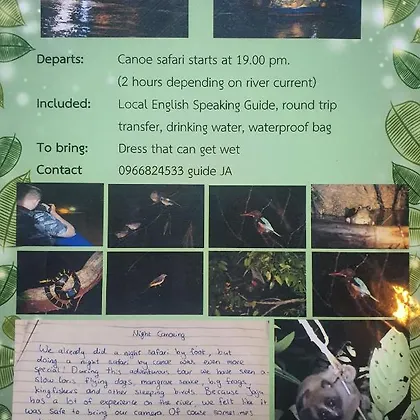 Departs: Canoe safari starts at 19.00 pm.
(2 hours depending on river current)
Included: Local English Speaking Guide, round trip
transfer, drinking water, waterproof bag
To bring: Dress that can get wet
Contact 0966824533 guide JA
Night Canoeing
We already did a night safari by foot, but
doing a night safari by canoe was even more
special! During this adventurous tour we have seen a
slow loris, flying dogs, mangrove snake, big frogs,
kingfishers and other sleeping birds. Because Jaja
has a lot of experience on the river, we felt like it
was safe to bring our camera. Of course sometimes